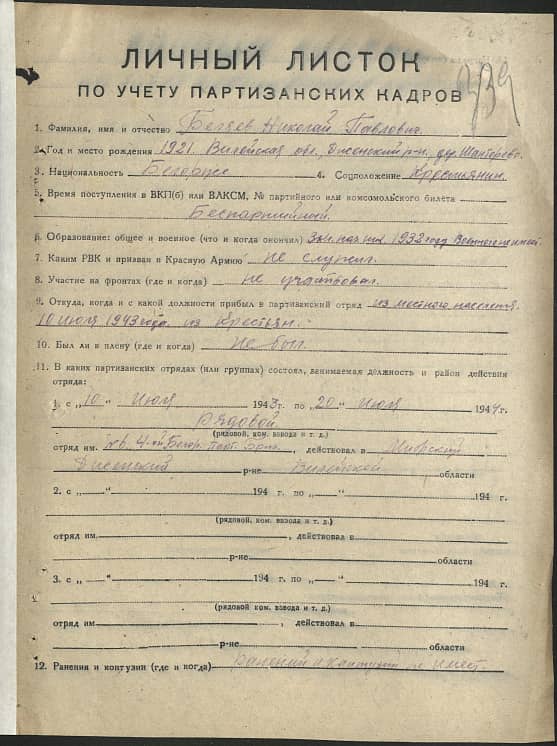 339
ЛИЧНЫЙ ЛИСТОК
ПО УЧЕТУ ПАРТИЗАНСКИХ КАДРОВ
1. Фамилия, имя и отчество Николай Павлович.
2. Год и место рождения 1921. Вилейская обл., Дисенский р-н. дер.
3. Национальность Белорус 4. Соцположение Крестьянин.
5. Время поступления в ВКП(б) или ВЛКСМ, № партийного или комсомольского билета
Беспартийный.
6. Образование: общее и военное (что и когда окончил) 1932 году
7. Каким РВК и призван в Красную Армию не служил.
8. Участие на фронтах (где и когда) не участвовал.
9. Откуда, когда и с какой должности прибыл в партизанский отряд из местного населения.
10 июля 1943 года. из крестьян.
10. Был ли в плену (где и когда) не был.
11. В каких партизанских отрядах (или группах) состоял, занимаемая должность и район действия
отряда:
1. с „10“ июля 1943 г. по „20“ июля 1944 г.
Рядовой
(рядовой, ком. взвода и т. д.)
отряд им. 4-ой Белор. Парт. Бриг., действовал в Миорский
Дисенский р-не Вилейской области
2. с „ “ 194 г. по „ “ 194 г.
(рядовой, ком. взвода и т. д.)
отряд им. , действовал в
р-не области
3. с „ “ 194 г. по „ “ 194 г.
(рядовой, ком. взвода и т. д.)
отряд им. , действовал в
р-не области
12. Ранения и контузии (где и когда) ранений и контузий не имеет